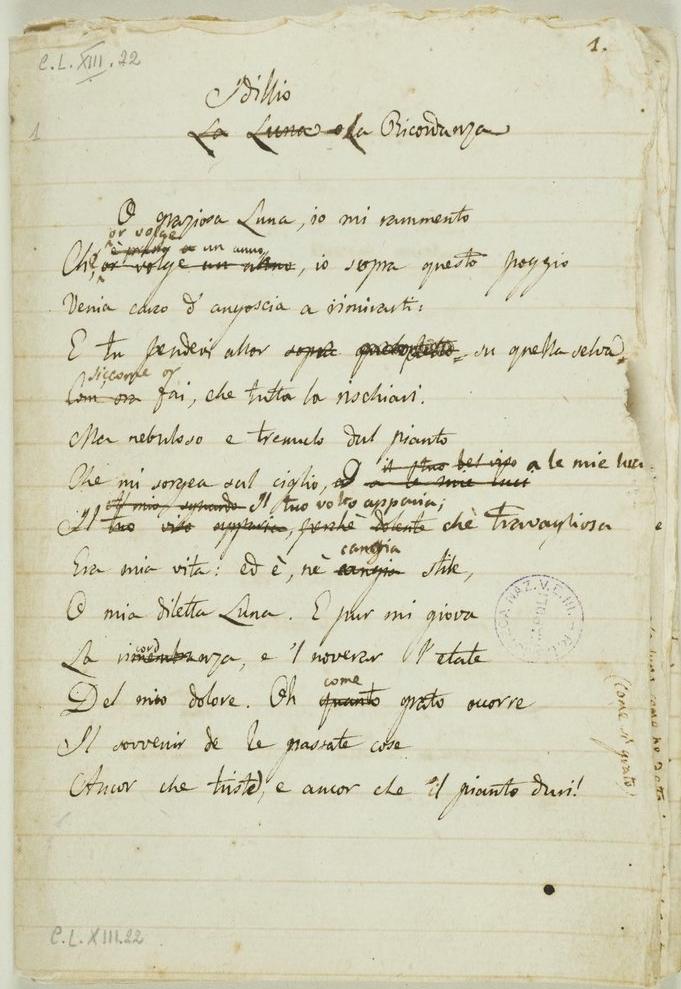 C.L. XIII. 22
1.
Idillio
1
La Luna o La Ricordanza
O graziosa Luna, io mi rammento
or volge
è presso a un anno
Che, or volge un anno, io sopra questo poggio
Venia carco d'angoscia a rimirarti:
E tu pendevi allor sopra su quella selva
siccome or
Com ora fai, che tutta la rischiari.
Ma nebuloso e tremulo dal pianto
il tuo bel viso a le mie luci
Che mi sorgea sul ciglio, a le mie luci
Al mio sguardo Il tuo volto apparia;
Il tuo viso apparia, perchè dolente chè travagliosa
cangia
Era mia vita: ed è, nè cangia stile,
O mia diletta Luna. E pur mi giova
cord
La rimembranza, e 'l noverar l'etate
come
Del mio dolore. Oh quanto grato occorre
Il sovvenir de le passate cose
Ancor che triste, e ancor che il pianto duri!
(come sì grato!
C.L.XIII.22